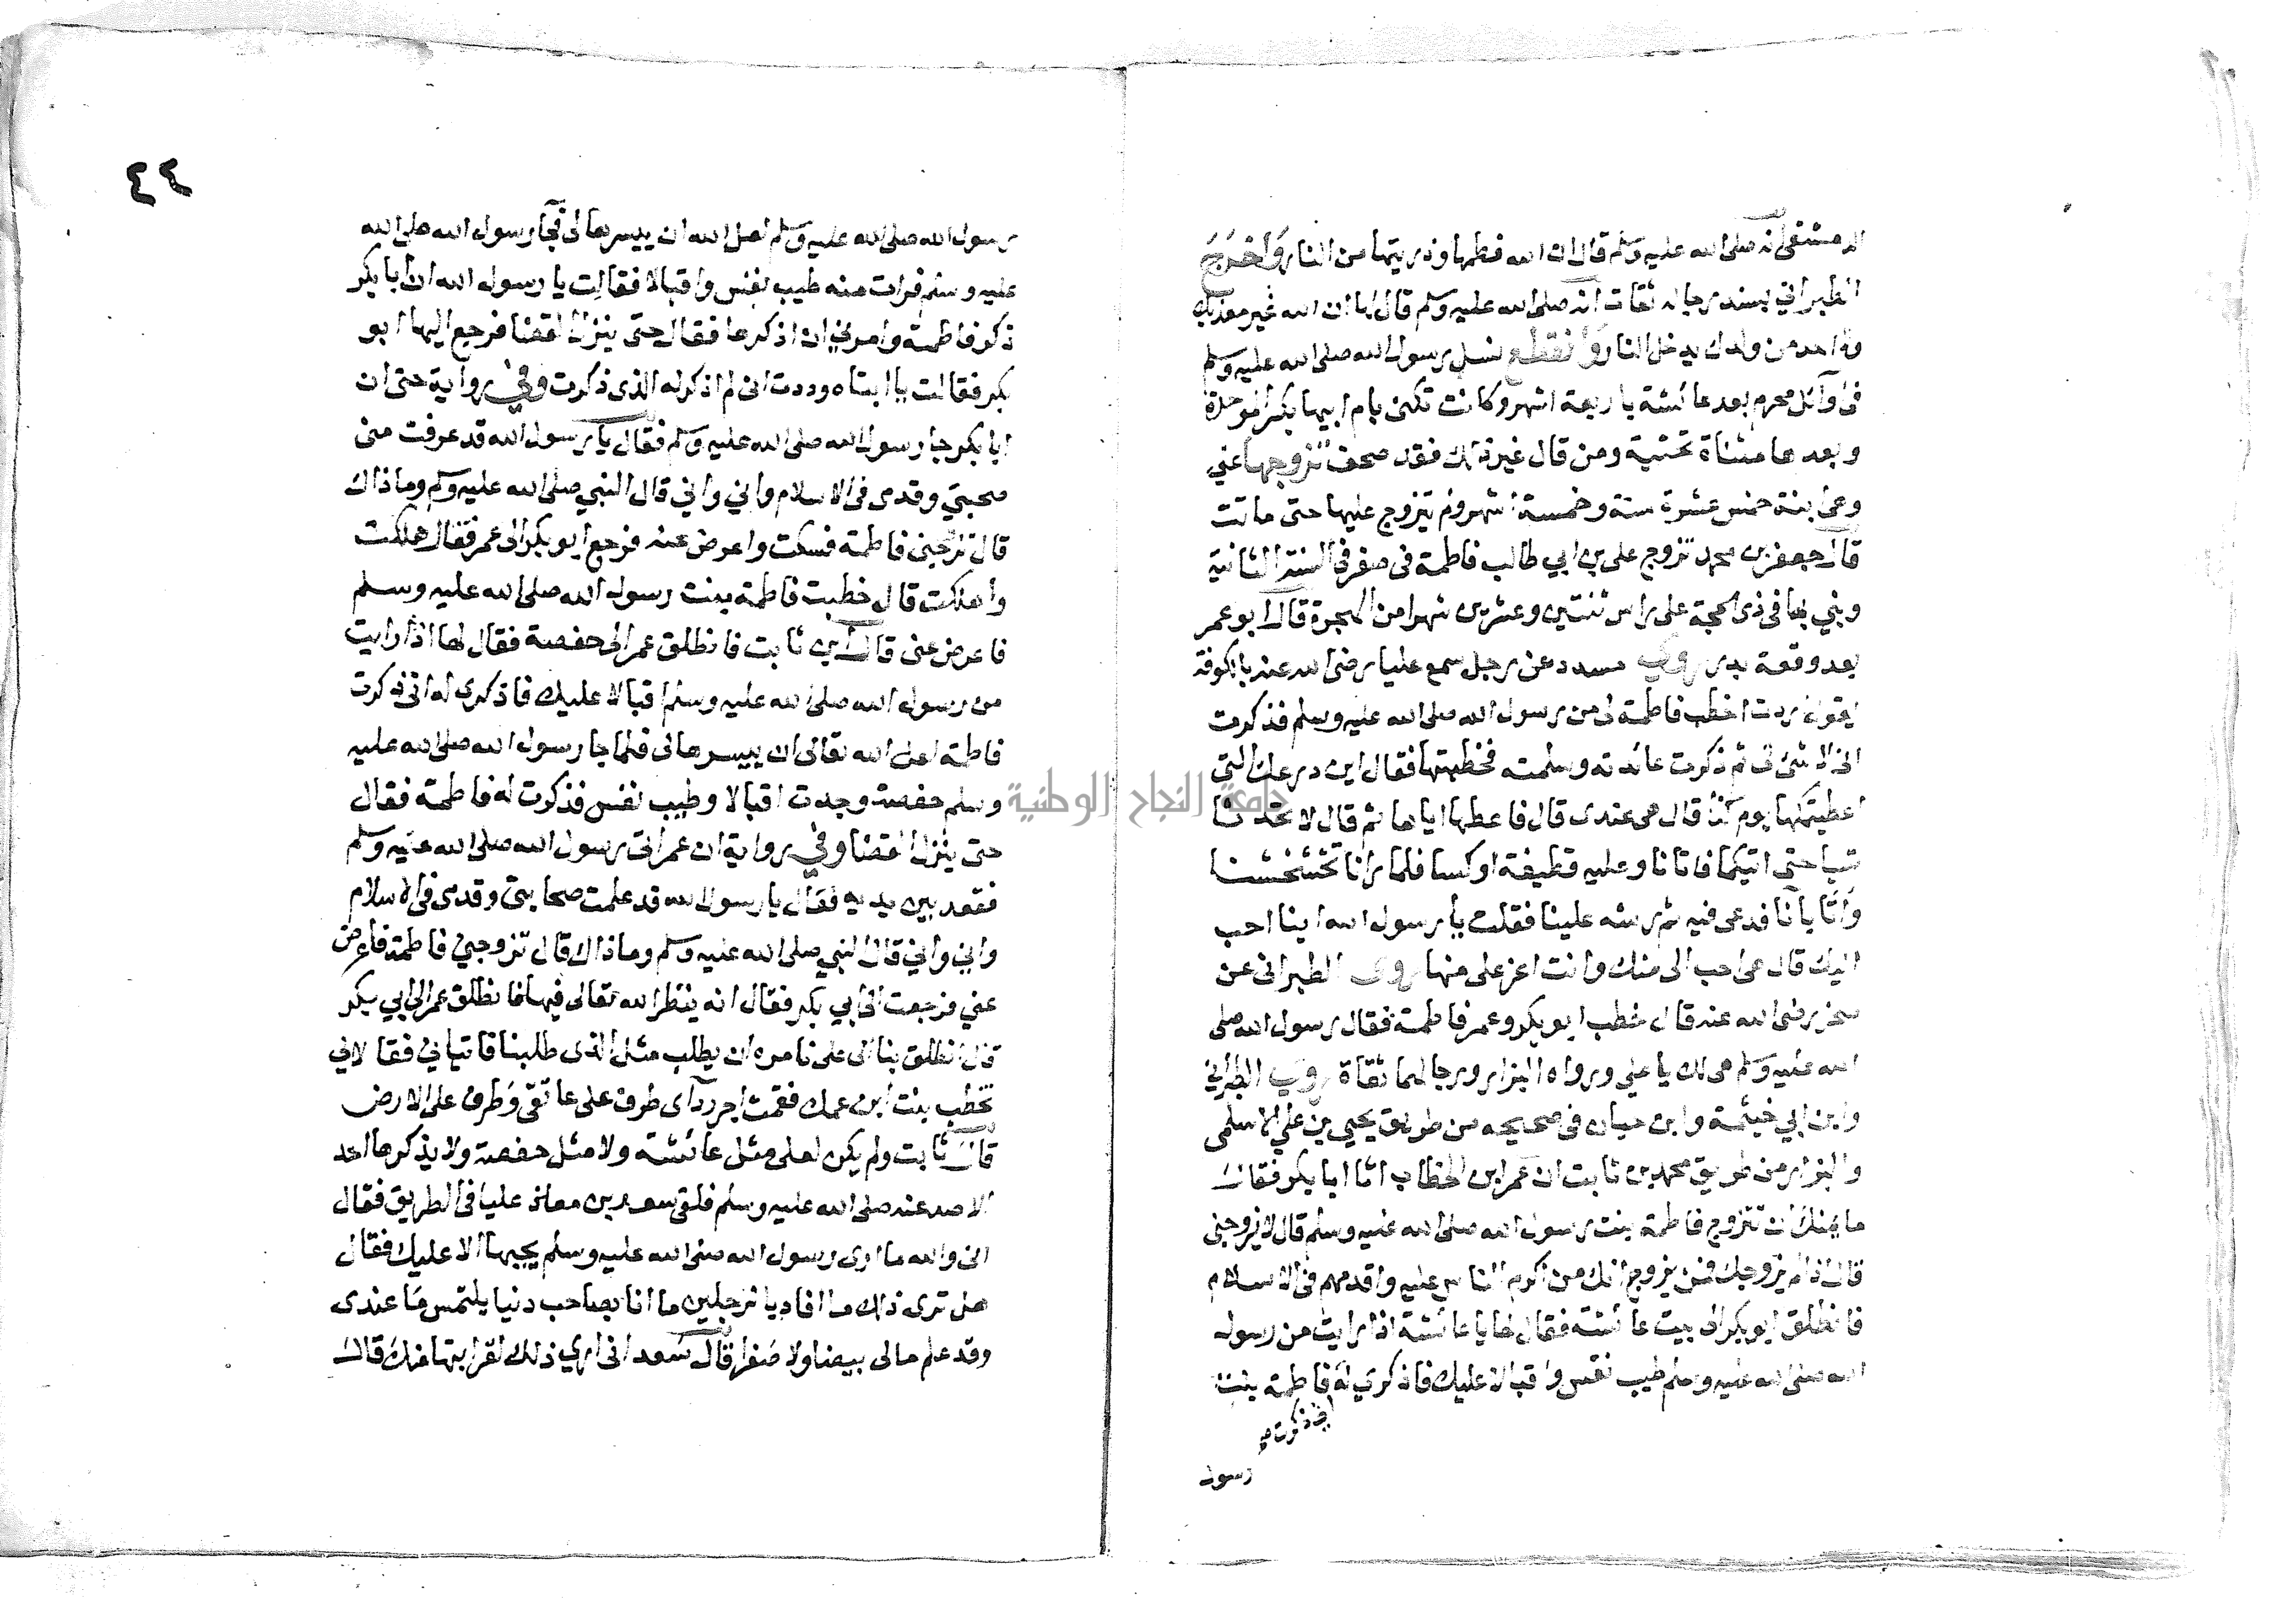 الدمشقي انه صلى الله عليه وسلم قال ان الله فطمها وذريتها من النار وَأخرَجَ
الطبراني بسند رجاله ثقات انه صلى الله عليه وسلم قال لها ان الله غير معذبك
ولا احد من ولدك يدخل النار وانقطع نسل رسول الله صلى الله عليه وسلم
في اوائل محرم بعد عائشة باربعة اشهر وكانت تكنى بام ابيها بكسر الموحدة
وبعدها مثناة تحتية ومن قال غير ذلك فقد صحف تزوجها علي
وهي بنت خمس عشرة سنة وخمسة اشهر ولم يتزوج عليها حتى ماتت
قال جعفر بن محمد تزوج علي بن ابي طالب فاطمة في صفر في السنة الثانية
وبني بها في ذي الحجة على راس ثنتين وعشرين شهرا من الهجرة قال ابو عمر
بعد وقعة بدر روى مسدد عن رجل سمع عليا رضي الله عنه بالكوفة
يقول اردت اخطب فاطمة لي من رسول الله صلى الله عليه وسلم فذكرت
اني لا شئ لي ثم ذكرت عائدته وسلمته فخطبتها فقال اين درعك التي
اعطيتكها يوم كذا قال هي عندي قال فاعطها اياها ثم قال لا تحدثا
شيا حتى اتيكما فاتانا وعليه قطيفة او كسا فلما رانا تخشخشنا
واتا بانا فدعى فيه ثم رشه علينا فقلت يا رسول الله اينا احب
اليك قال هي احب الي منك وانت اعز علي منها روى الطبراني عن
رضي الله عنه قال خطب ابو بكر وعمر فاطمة فقال رسول الله صلى
الله عليه وسلم هي لك يا علي ورواه البزار ورجالهما ثقاة روى الطبراني
وابن ابي خيثمة وابن حبان في صحيحه من طريق يحيي بن علي الاسلمي
والبزار من طريق محمد بن ثابت ان عمر ابن الخطاب اتا ابا بكر فقال
ما يمنعك ان تتزوج فاطمة بنت رسول الله صلى الله عليه وسلم قال لا يزوجني
قال اذا لم يزوجك فمن يزوج انك من اكرم الناس عليه واقدمهم في الاسلام
فانطلق ابو بكر الى بيت عائشة فقال لها يا عائشة اذا رايت من رسول
الله صلى الله عليه وسلم طيب نفس واقبالا عليك فاذكري له فاطمة بنت
اني ذكرت
رسول
٤٢
رسول الله صلى الله عليه وسلم لعل الله ان ييسرها لي فجا رسول الله صلى الله
عليه وسلم فرات منه طيب نفس واقبالا فقالت يا رسول الله ان ابا بكر
ذكر فاطمة وامرني ان اذكرها فقال حتى ينزل القضا فرجع اليها ابو
بكر فقالت يا ابتاه وددت اني لم اذكر له الذي ذكرت وفي رواية حتى ان
ابا بكر جا رسول الله صلى الله عليه وسلم فقال يا رسول الله قد عرفت مني
صحبتي وقدمى في الاسلام واني واني قال النبي صلى الله عليه وسلم وما ذاك
قال تزوجني فاطمة فسكت واعرض عنه فرجع ابو بكر الى عمر فقال هلكت
وأهلكت قال خطبت فاطمة بنت رسول الله صلى الله عليه وسلم
فاعرض عني قال ابن ثابت فانطلق عمر الى حفصة فقال لها اذا رايت
من رسول الله صلى الله عليه وسلم اقبالا عليك فاذكري له اني ذكرت
فاطمة لعل الله تعالى ان ييسرها لي فلما جا رسول الله صلى الله عليه
وسلم حفصة وجدت اقبالا وطيب نفس فذكرت له فاطمة فقال
حتى ينزل القضا وفي رواية ان عمر اتى رسول الله صلى الله عليه وسلم
فقعد بين يديه فقال يا رسول الله قد علمت صحابتي وقدمى في الاسلام
واني واني قال النبي صلى الله عليه وسلم وما ذاك قال تزوجني فاطمة فاعرض
عني فرجعت الى ابي بكر فقال انه ينتظر الله تعالى فيها فانطلق عمر الى ابي بكر
قال انطلق بنا الى علي نامره ان يطلب مثل الذي طلبنا فاتياني فقالا لي
تخطب بنت ابن عمك فقمت اجر رداى طرف على عاتقي وطرف على الارض
قال ثابت ولم يكن لعلي مثل عائشة ولا مثل حفصة ولا يذكرها احد
الا صد عنه صلى الله عليه وسلم فلقي سعد بن معاذ عليا في الطريق فقال
اني والله ما ارى رسول الله صلى الله عليه وسلم يحبها الا عليك فقال
هل ترى ذلك ما انا برجلين ما انا بصاحب دنيا يلتمس ما عندى
وقد علم مالي بيضا ولا صفرا قال سعد اني اري ذلك لقرابتها منك قال
جامعة النجاح الوطنية